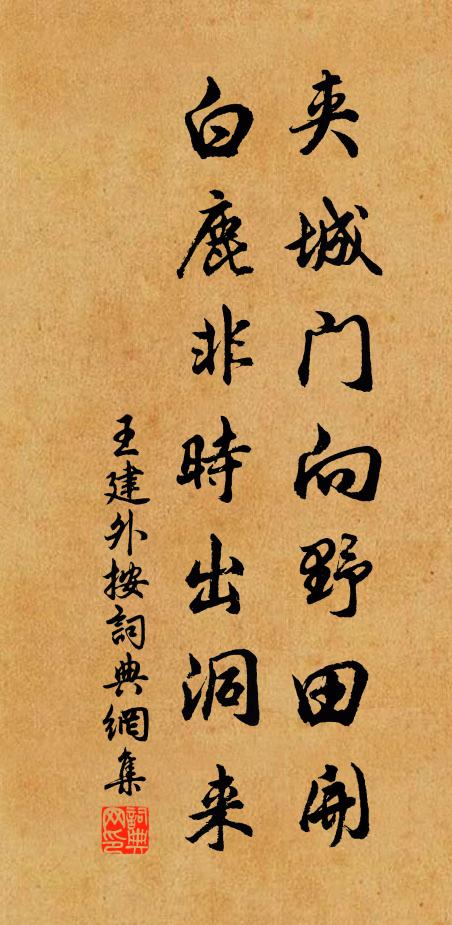 夹城门向野田开
白鹿非時出洞来
王建外按詞典網集
詞典网印